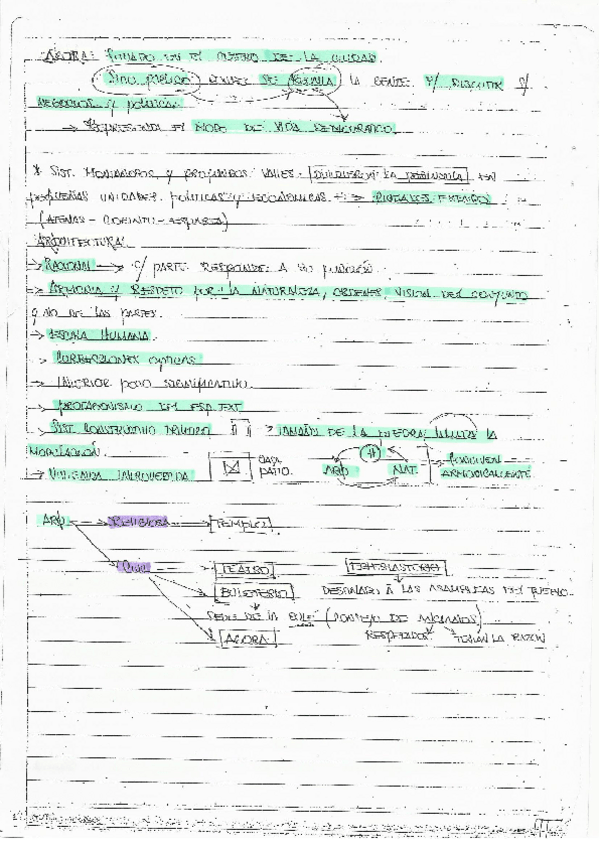 ÁGORA: SITUADO EN EL CENTRO DE LA CIUDAD.
SITIO PÚBLICO DONDE SE REUNÍA LA GENTE P/ DISCUTIR S/
NEGOCIOS Y POLÍTICA.
→ REPRESENTA EL MODO DE VIDA DEMOCRATICO.
* SIST. MONTAÑOSOS Y PROFUNDOS VALLES DIVIDIERON LA PENÍNSULA EN
PEQUEÑAS UNIDADES POLÍTICAS Y ECONÓMICAS → RIVALES
(ATENAS - CORINTO - )
ARQUITECTURA.
→ RACIONAL → C/ PARTE RESPONDE A UNA FUNCIÓN.
→ ARMONÍA Y RESPETO POR LA NATURALEZA, ORDENES, VISION DEL CONJUNTO
Q NO DE LAS PARTES.
→ ESCALA HUMANA.
→ CORRECCIONES OPTICAS
→ INTERIOR POCO SIGNIFICATIVO.
→ PROTAGONISMO DEL ESP. EXT
→ SIST. CONSTRUCTIVO TRILITICO TAMAÑO DE LA PIEDRA LIMITA LA
MODULACIÓN.
→ VIVIENDA INTROVERTIDA CASA PATIO. ARQ NAT. → CONVIVEN ARMONICAMENTE
ARQ → RELIGIOSA → TEMPLO
CIVIL → TEATRO
BULETERIO DESTINADO A LAS ASAMBLEAS DEL PUEBLO
SEDE DE LA BULÉ (CONSEJO DE ANCIANOS)
AGORA RESPETADOS TENÍAN LA RAZÓN